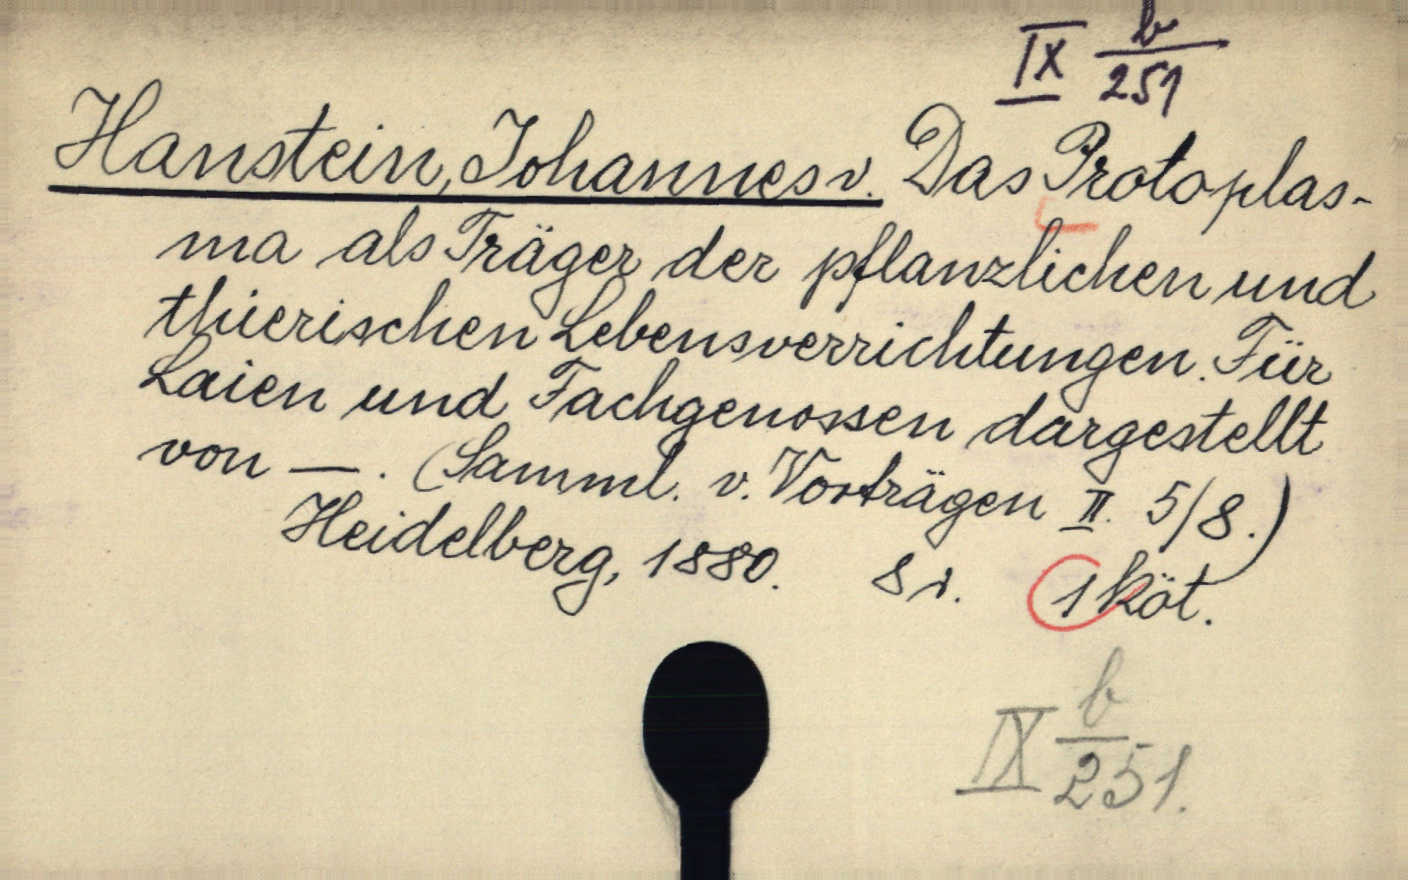 IX b/251
Hanstein, Johannes v. Das Protoplas-
ma als Träger der pflanzlichen und
thierischen Lebensverrichtungen. Für
Laien und Fachgenossen dargestellt
von —. (Samml. v. Vorträgen II. 5/8.)
Heidelberg, 1880. 8 r. 1 köt.
IX b/251.